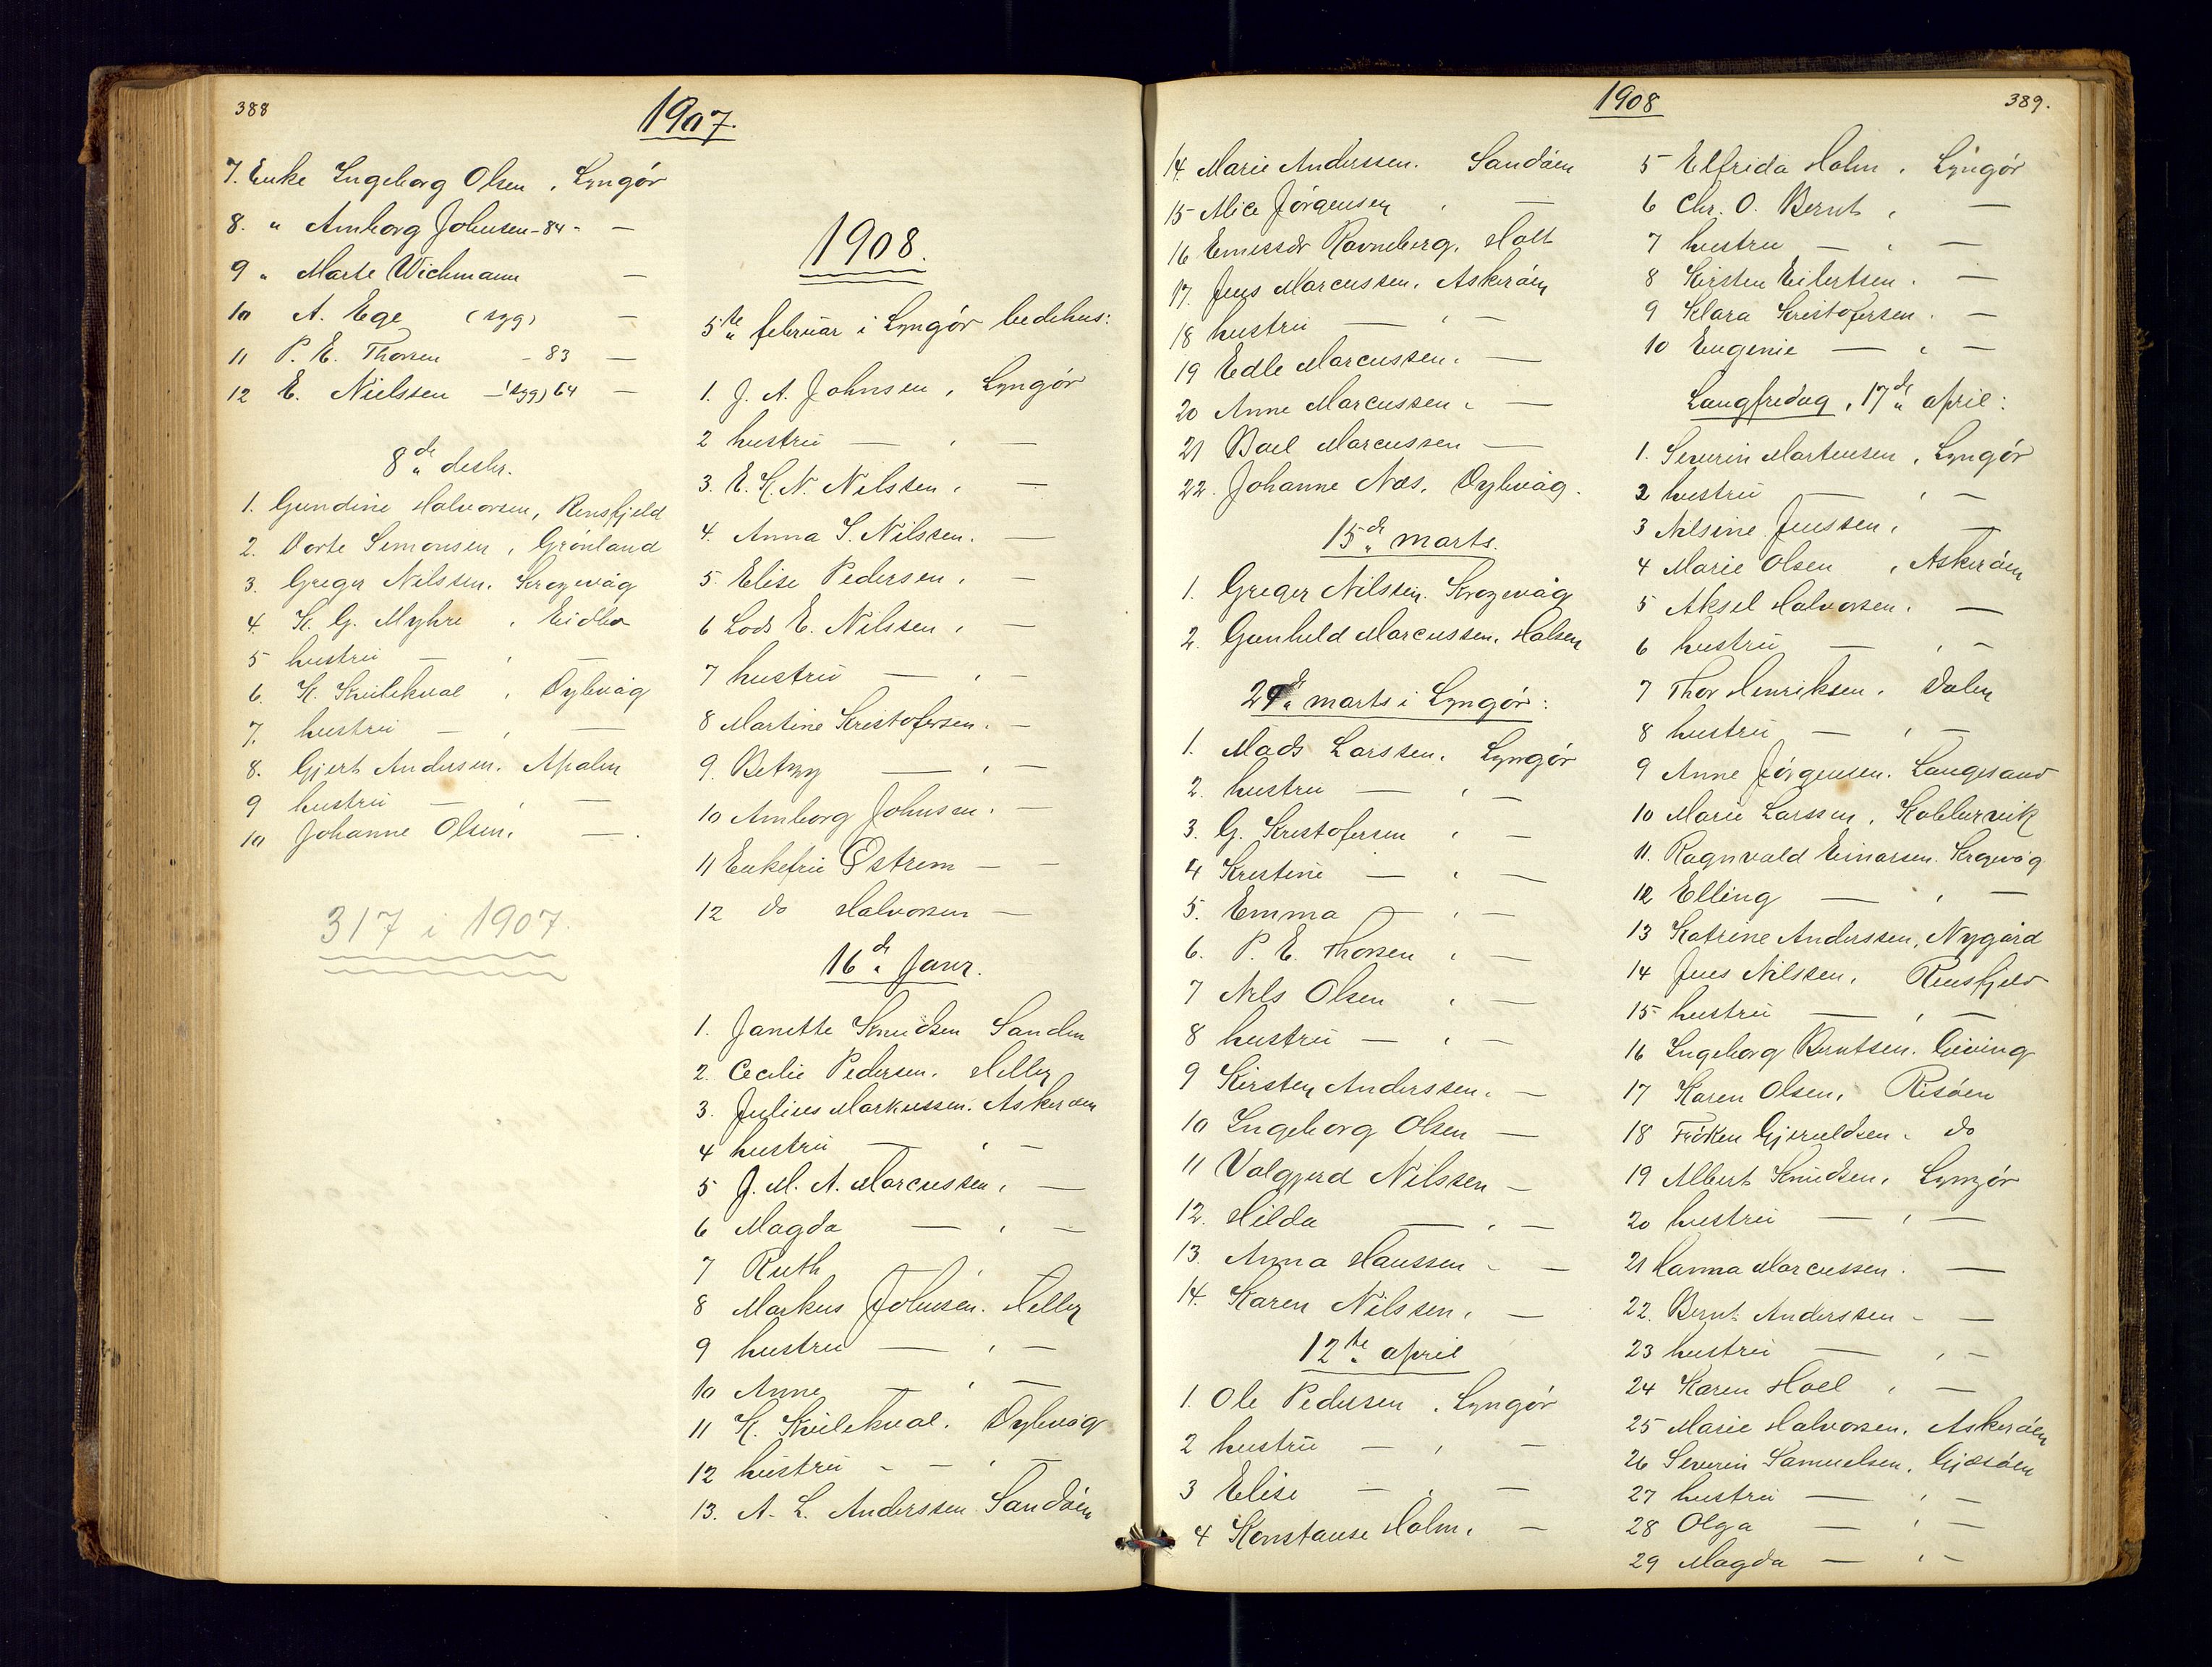 388
1907.
7. Enke Ingeborg Olsen, Lyngör
8. " Amborg Johnsen - 84 - —
9 " Marte Wichmann —
10 A. Ege (syg) —
11 P. E. Thorsen - 83 —
12 E. Nielssen - (syg) 64 —
8de desbr.
1. Gundine Halvorsen, Rensfjeld
2. Dorte Simonsen, Grönland
3. Greger Nilssen. Krogevåg
4. K. G. Myhre, Eidbo
5 hustru — , —
6. K. Kvilekval, Dybvåg
7. hustru — , —
8. Gjert Andersen. Apalen
9 hustru — , —
10 Johanne Olsen. —.
317 i 1907.
1908.
5te februar i Lyngör bedehus:
1. J. A. Johnsen, Lyngör
2 hustru — , —
3. E. K. N. Nilssen, —
4. Anna S. Nilssen. —
5. Elise Pedersen, —
6 Lods E. Nilssen, —
7 hustru — , —
8 Martine Kristofersen. —
9. Betzy — , —
10 Amborg Johnsen. —
11 Enkefru Östrem — —
12 do Halvorsen —
16de Janr.
1. Janette Knudsen Sanden
2. Cecilie Pedersen. Hellen
3. Julius Markussen. Askeröen
4 hustru — , —
5 J. M. A. Marcussen, —
6 Magda — , —
7 Ruth — , —
8 Markus Johnsen. Hellen
9 hustru — , —
10 Anne — , —
11 K. Kvilekval. Dybvåg
12 hustru - — , —
13. A. L. Anderssen Sandöen
1908
389.
14. Marie Anderssen. Sandöen
15 Alice Jörgensen , —
16 Emissær Ravneberg. Holt
17. Jens Marcussen. Askeröen
18 hustru — , —
19 Edle Marcussen. —
20 Anne Marcussen, —
21 Boel Marcussen —
22. Johanne Næs. Dybvåg.
15de marts.
1. Greger Nilssen. Krogevåg
2. Gunhild Marcussen. Halsen
29de marts i Lyngör:
1. Mads Larssen. Lyngör
2. hustru — , —
3. G. Kristofersen , —
4 Kristine — , —
5. Emma — , —
6. P. E. Thorsen , —
7 Nils Olsen , —
8 hustru — , —
9 Kirsten Anderssen. —
10 Ingeborg Olsen —
11 Valgjerd Nilssen —
12. Hilda — , —
13. Anna Hanssen - —
14. Karen Nilssen, —
12te april
1. Ole Pedersen, Lyngör
2 hustru — , —
3 Elise — , —
4 Konstanse Holm, —
5 Elfrida Holm, Lyngör
6 Chr. O. Bernt, —
7 hustru — , —
8 Kirsten Eilertsen. —
9 Klara Kristofersen. —
10 Eugenie — , —
Langfredag, 17de april:
1. Severin Martensen, Lyngör
2 hustru — , —
3 Nilsine Jenssen, —
4 Marie Olsen, Askeröen
5 Aksel Halvorsen. —
6 hustru — , —
7 Thor Henriksen. Dalen
8 hustru — , —
9 Anne Jörgensen. Langesand
10 Marie Larssen, Kobbervik
11. Ragnvald Einarsen. Krogevåg
12 Elling — , —
13 Katrine Anderssen, Nygård
14 Jens Nilssen, Rensfjeld
15 hustru — , —
16 Ingeborg Berntsen. Gieving
17 Karen Olsen, Risöen
18 Fröken Gjeruldsen. do
19 Albert Knudsen, Lyngör
20 hustru — , —
21 Hanna Marcussen. —
22. Bernt Anderssen - —
23 hustru — , —
24 Karen Hoel , —
25 Marie Halvorsen. Askeröen
26 Severin Samuelsen. Gjæsöen
27 hustru — , —
28 Olga — , —
29 Magda — , —